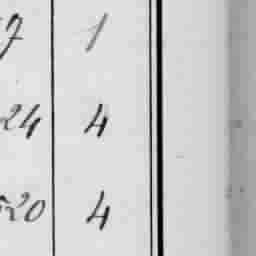 7 1
24 4
520 4